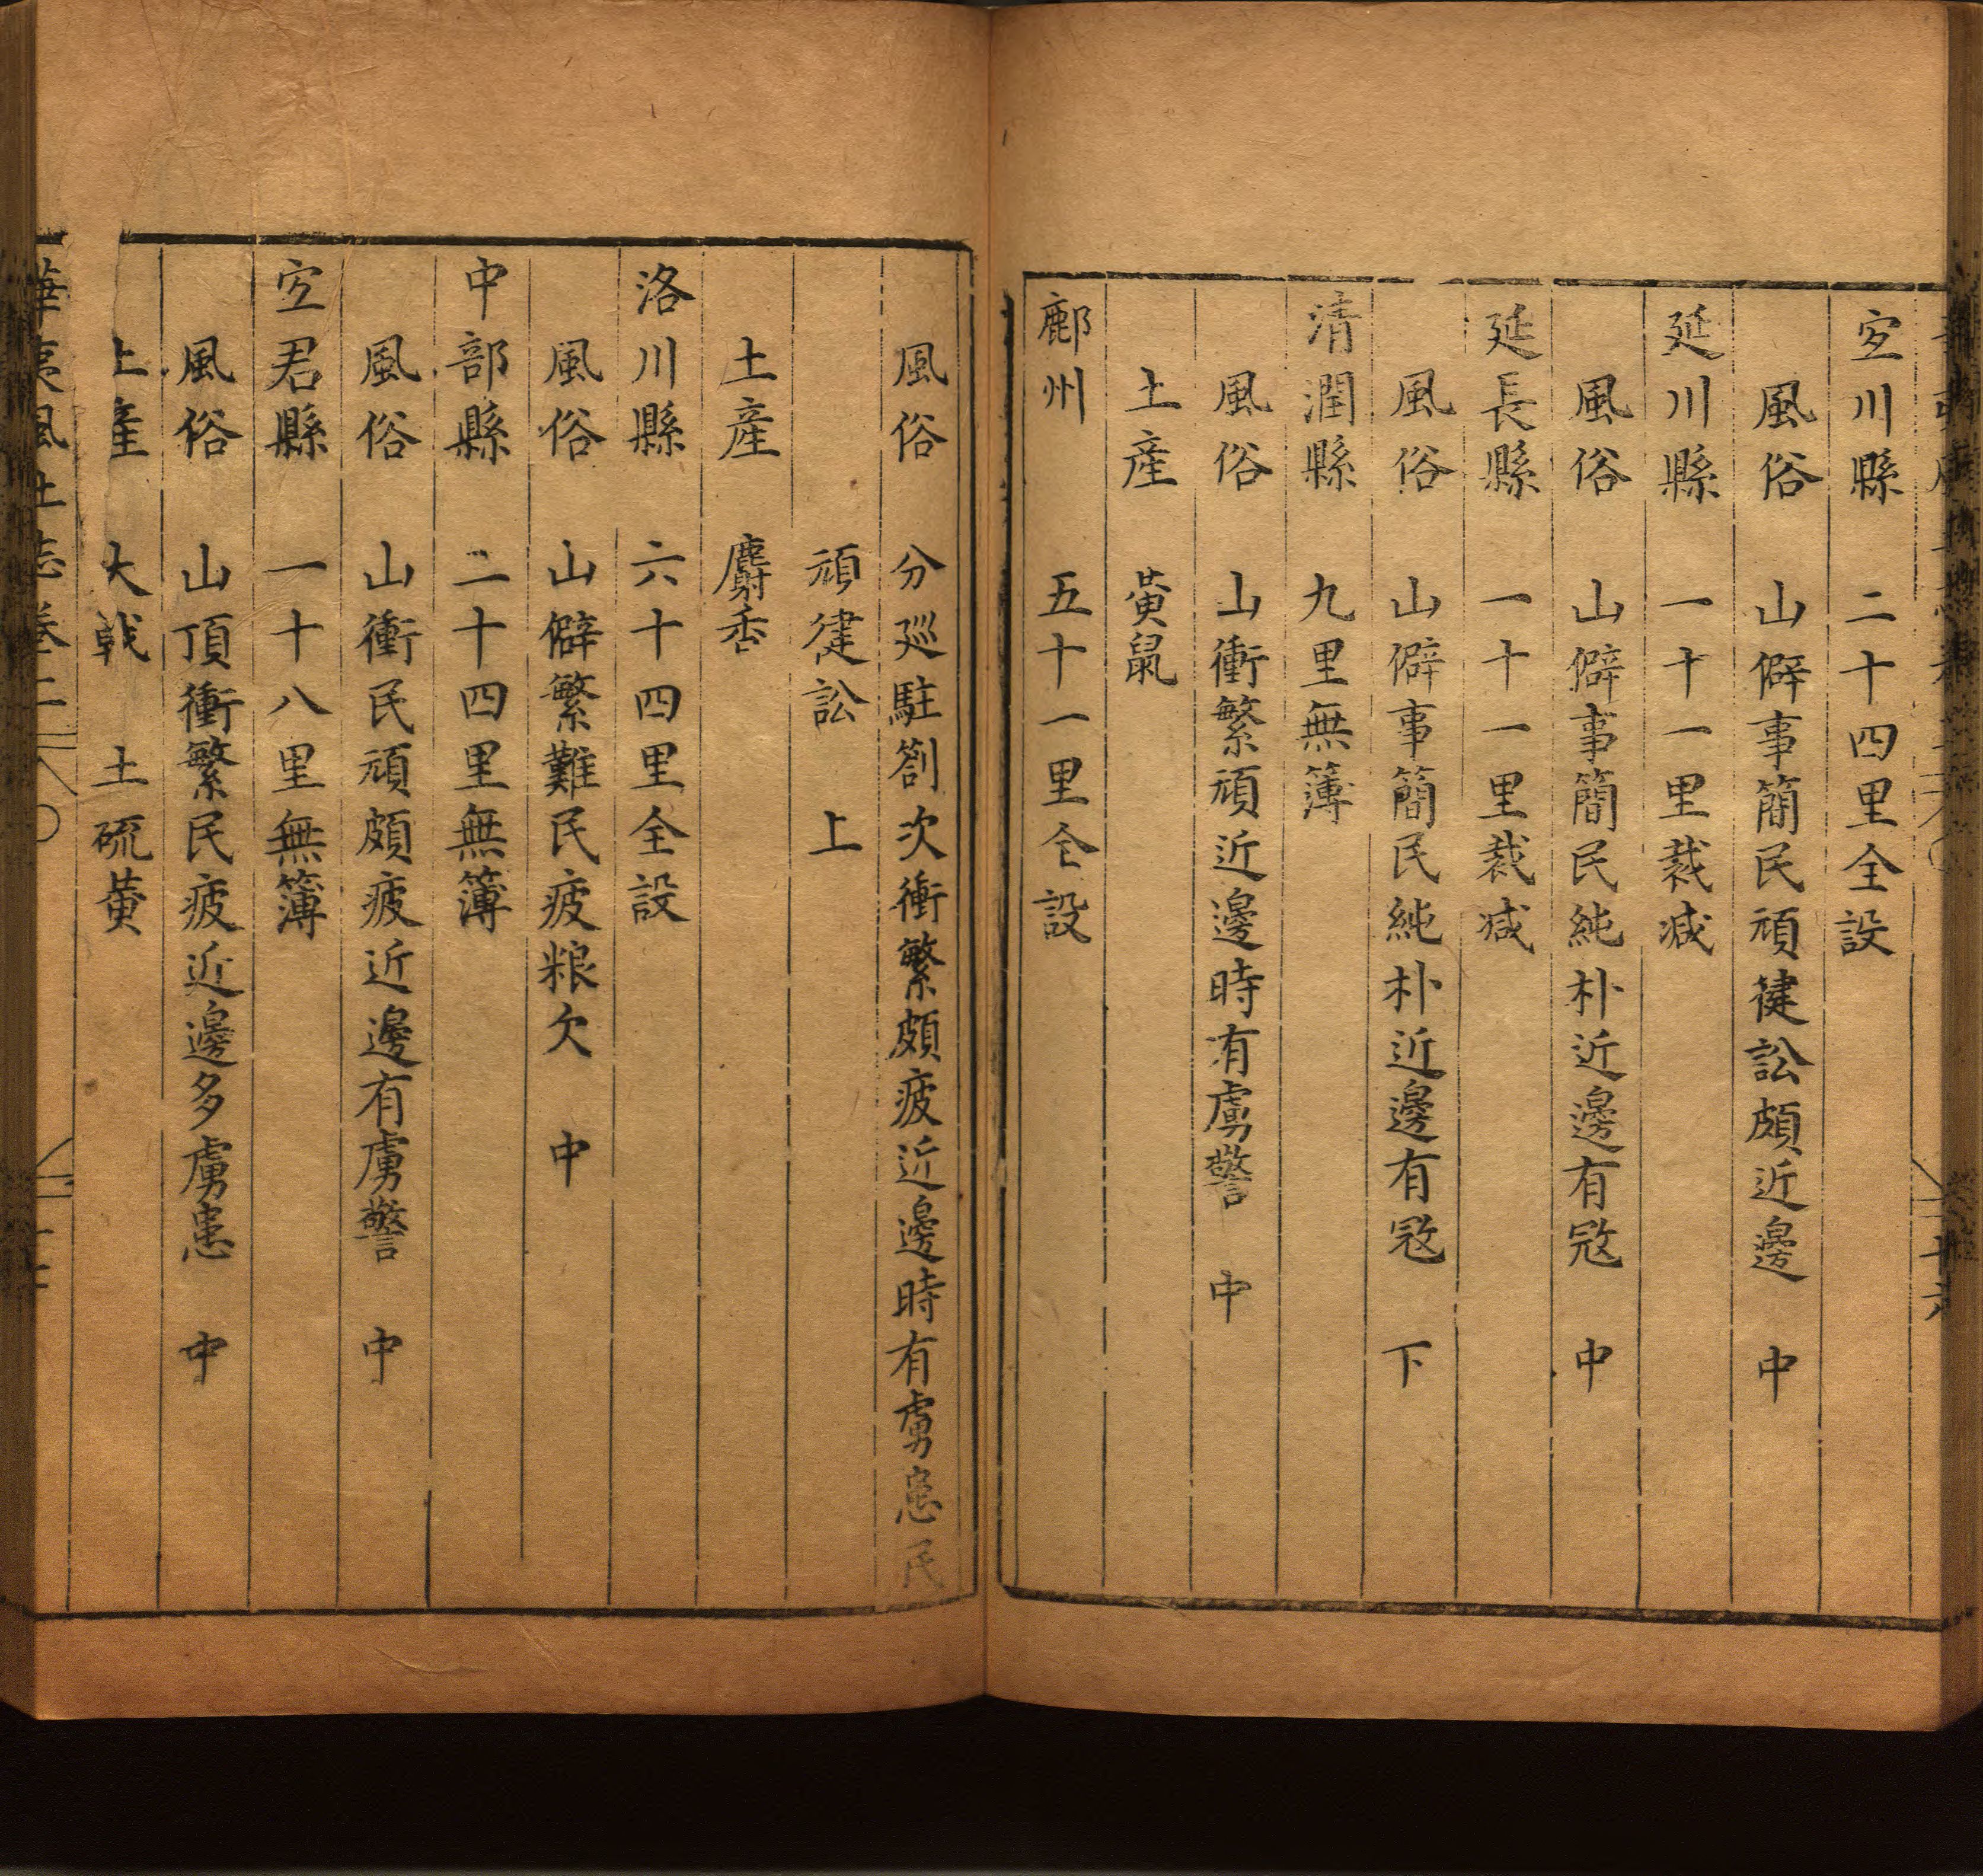 宐川縣 二十四里全設
風俗 山僻事簡民頑健訟頗近邊 中
延川縣 一十一里裁减
風俗 山僻事簡民純朴近邊有㓂 中
延長縣 一十一里裁减
風俗 山僻事簡民純朴近邊有㓂 下
清澗縣 九里無簿
風俗 山衝繁頑近邊時有虜警 中
土産 黄鼠
鄜州 五十一里全設
風俗 分廵駐劄次衝繁頗疲近邊時有虜患民
頑健訟 上
土産 麝香
洛川縣 六十四里全設
風俗 山僻繁難民疲粮欠 中
中部縣 二十四里無簿
風俗 山衝民頑頗疲近邊有虜警 中
宐君縣 一十八里無簿
風俗 山頂衝繁民疲近邊多虜患 中
土產 大戟 土硫黄
華夷風土志卷二